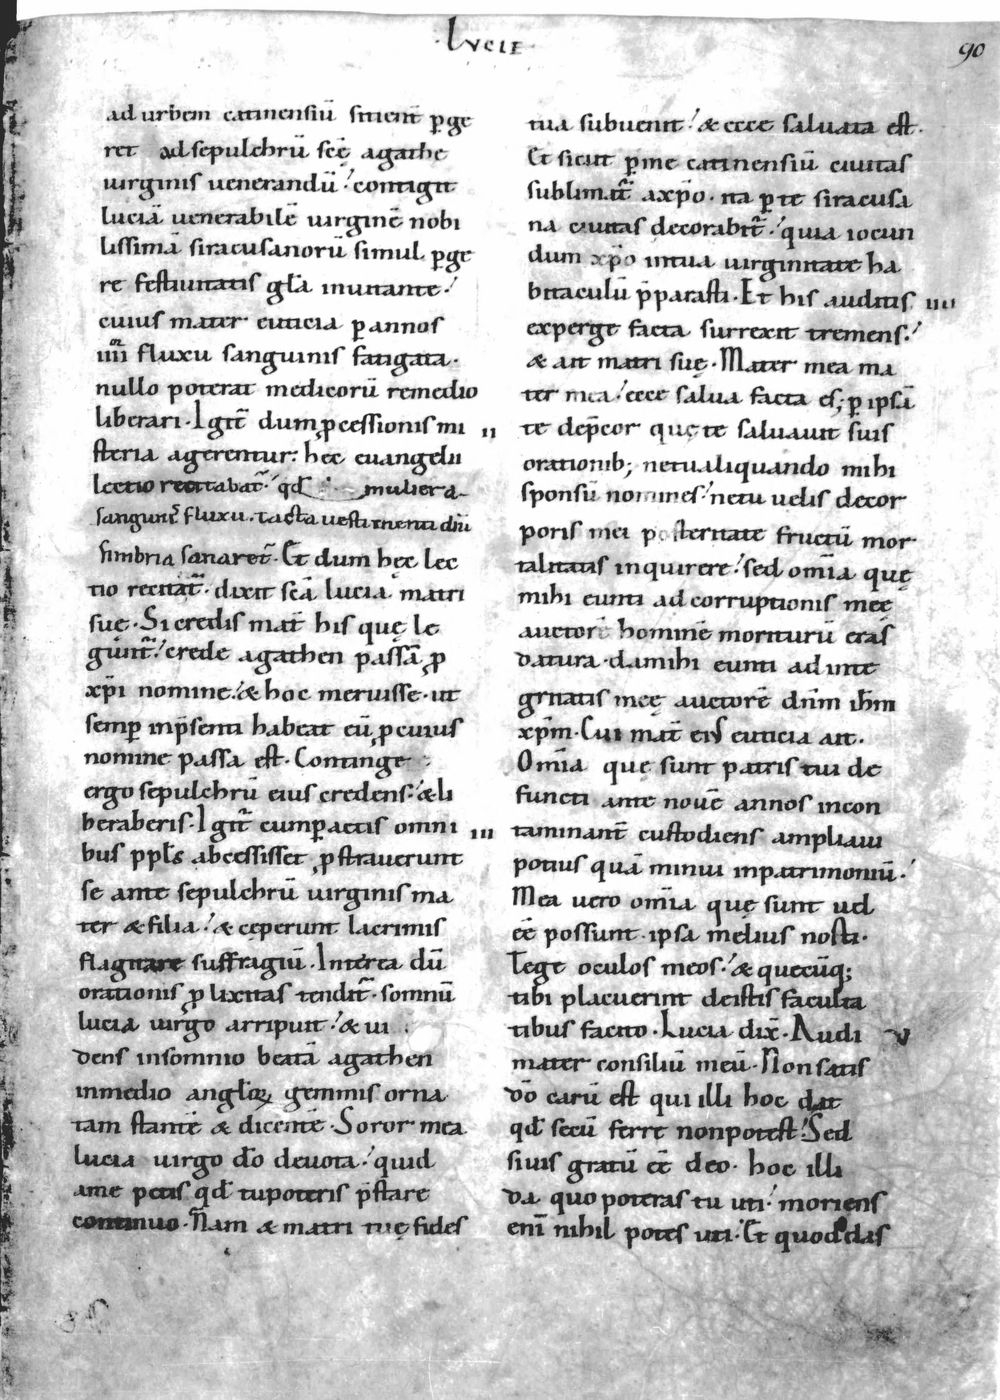 Lucie
90
ad urbem catinensiū sitient̄ ꝑge
ret ad sepulchrū scę̄ agathe
uirginis uenerandū: contigit
luciā uenerabilē uirginē nobi
lissimā siracusanorū simul ꝑge
re festiuitatis gl̄a inuitante:
cuius mater euticia ꝑ annos
iiiior fluxu sanguinis fatigata.
nullo poterat medicorū remedio
liberari. Igit̄ dum ꝓcessionis mi
steria agerentur: hęc euangelii
lectio recitabat̄: qd̄ muliera
sanguinē fluxu. tacta uestimenti dn̄i
fimbria sanaret̄. Et dum hęc lec
tio recitat̄. dixit sc̄a lucia matri
suę. Si credis mat̄ his quę le
gunt̄: crede agathen passā ꝓ
xp̄i nomine: & hoc meruisse. ut
semꝑ inp̄senti habeat eū ꝓ cuius
nomine passa est. Continge
ergo sepulchrū eius credens: & li
beraberis. Igit̄ cumꝑactis omni
bus ppl̄s abcessisset ꝓstrauerunt
se ante sepulchrū uirginis ma
ter & filia: & cęperunt lacrimis
flagitare suffragiū. Interea dū
orationis ꝓlixitas tendit̄. somnū
lucia uirgo arripuit: & ui
dens insomnio beatā agathen
inmedio anglorꝝ gemmis orna
tam stantē & dicentē. Soror mea
lucia uirgo d̄o deuota: quid
ame petis qd̄ tupoteris p̄stare
continuo. Nam & matri tuę fides
tua subuenit: & ecce saluata est.
Et sicut ꝑme catinensiū ciuitas
sublimat̄ axp̄o. ita ꝑ te siracusa
na ciuitas decorabit̄: quia iocun
dum xp̄o intua uirginitate ha
bitaculū p̄parasti. Et his auditis iiii
experge facta surrexit tremens:
& ait matri suę. Mater mea ma
ter mea: ecce salua facta es; ꝑ ipsā
te dep̄cor quę te saluauit suis
orationib; netualiquando mihi
sponsū nomines: netu uelis decor
poris mei posteritate fructū mor
talitatis inquirere: sed om̄ia quę
mihi eunti ad corruptionis meę
auctorē hominē moriturū eras
datura. damihi eunti ad inte
gritatis meę auctorē dn̄m ih̄m
xp̄m. Cui mat̄ eiꝰ euticia ait.
Om̄ia que sunt patris tui de
functi ante nouē annos incon
taminant̄ custodiens ampliaui
potius quā minui inpatrimoniū:
Mea uero om̄ia quę sunt uel
ēē possunt ipsa melius nosti.
Tege oculos meos: & quecūq;
tibi placuerint deistis faculta
tibus facito. Lucia dix̄. Audi v
mater consiliū meū. Non satis
d̄o carū est qui illi hoc dat
qd̄ secū ferre nonpotest: Sed
siuis gratū ēē deo. hoc illi
da quo poteras tu uti: moriens
enī nihil potes uti. Et quod das